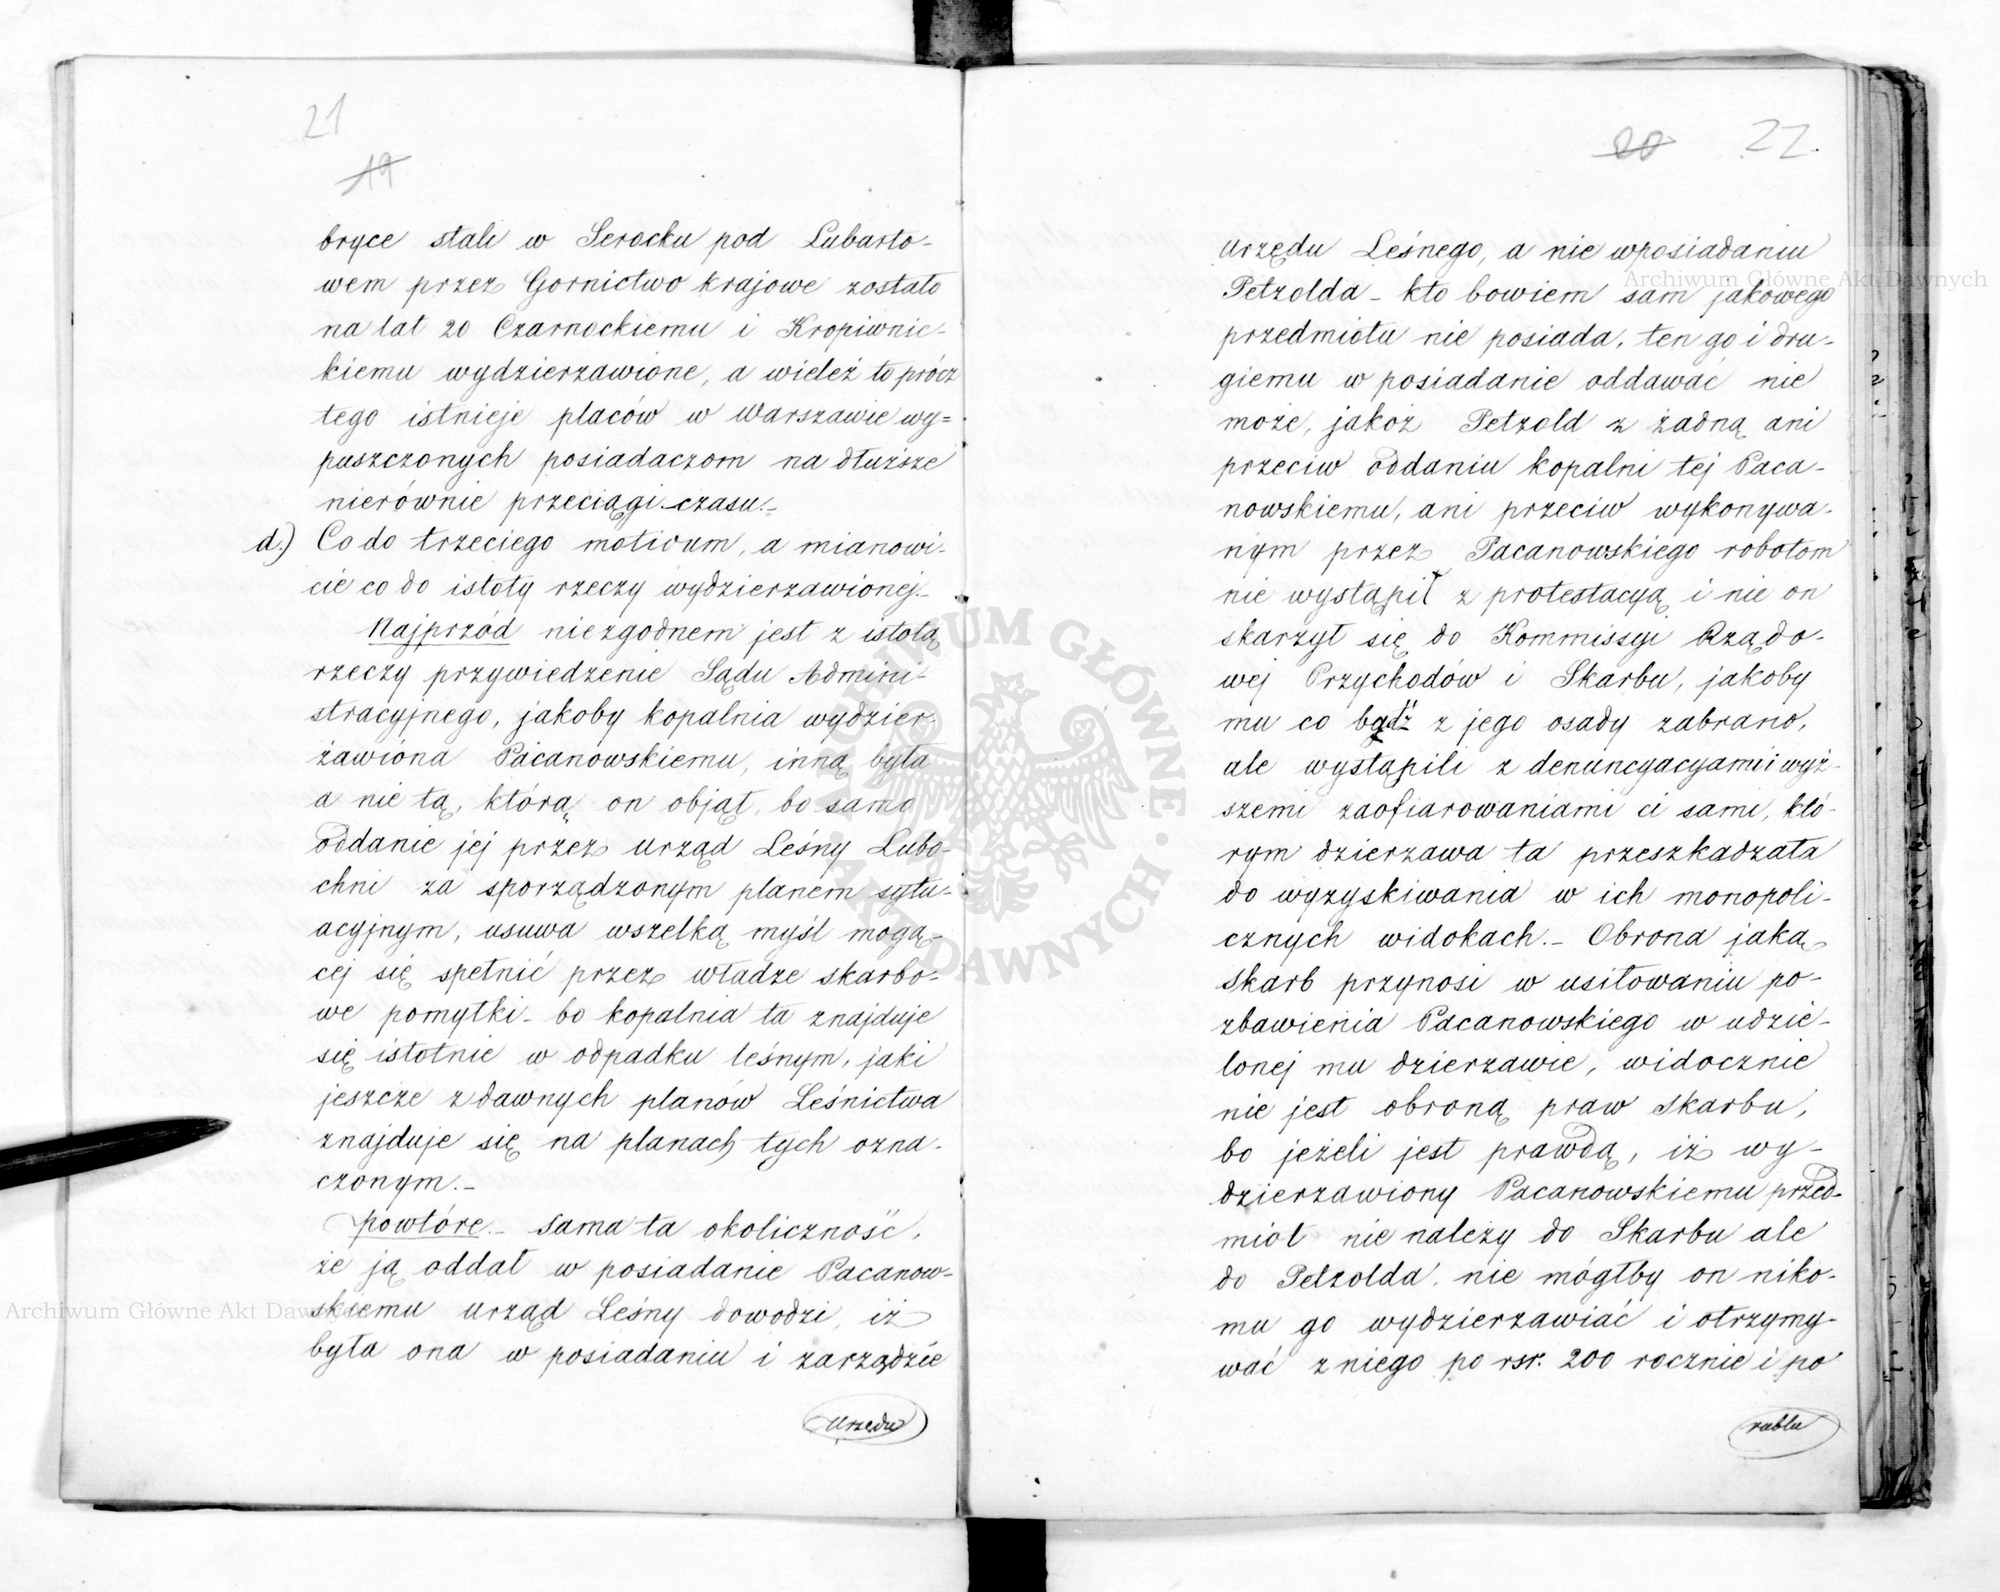 21
19
bryce stali w Serocku pod Lubarto-
wem przez Gornictwo krajowe zostało
na lat 20 Czarnockiemu i Kropiwnic-
kiemu wydzierzawione, a wieleż to prócz
tego istnieje placów w Warszawie wy=
puszczonych posiadaczom na dłuższe
nierównie przeciągi czasu.-
d.) Co do trzeciego motivum, a mianowi-
cie co do istoty rzeczy wydzierzawionej.-
Najprzód niezgodnem jest z istotą
rzeczy przywiedzenie Sądu Admini-
stracyjnego, jakoby kopalnia wydzier-
żawiona Pacanowskiemu, inną była
a nie tą, którą on objął, bo samo
oddanie jej przez Urząd Leśny Lubo-
chni za sporządzonym planem sytu-
acyjnym, usuwa wszelką myśl mogą-
cej się spełnić przez władze skarbo-
we pomyłki - bo kopalnia ta znajduje
się istotnie w odpadku leśnym, jaki
jeszcze z dawnych planów Leśnictwa
znajduje się na planach tych ozna-
czonym.-
powtóre.- Sama ta okoliczność,
że ją oddał w posiadanie Pacanow-
skiemu Urząd Leśny dowodzi, iż
była ona w posiadaniu i zarządzie
Urzędu
20 22.
Urzędu Leśnego, a nie w posiadaniu
Petzolda - kto bowiem sam jakowego
przedmiotu nie posiada, ten go i dru-
giemu w posiadanie oddawać nie
może, jakoż Petzold z żadną ani
przeciw oddaniu kopalni tej Paca-
nowskiemu, ani przeciw wykonywa-
nym przez Pacanowskiego robotom
nie wystąpił z protestacyą i nie on
skarzył się do Kommissyi Rządo-
wej Przychodów i Skarbu, jakoby
mu co bądź z jego osady zabrano,
ale wystąpili z denuncyacyami i wyż-
szemi zaofiarowaniami ci sami, któ-
rym dzierzawa ta przeszkadzała
do wyzyskiwania w ich monopoli-
cznych widokach.- Obrona jaką
Skarb przynosi w usiłowaniu po-
zbawienia Pacanowskiego w udzie-
lonej mu dzierzawie, widocznie
nie jest obroną praw Skarbu,
bo jeżeli jest prawdą, iż wy-
dzierzawiony Pacanowskiemu przed-
miot nie należy do Skarbu ale
do Petzolda, nie mógłby on niko-
mu go wydzierzawiać i otrzymy-
wać z niego po rsr. 200 rocznie i po
rublu
Archiwum Główne Akt Dawnych
Archiwum Główne Akt Dawnych
ARCHIWUM GŁÓWNE · AKT DAWNYCH ·